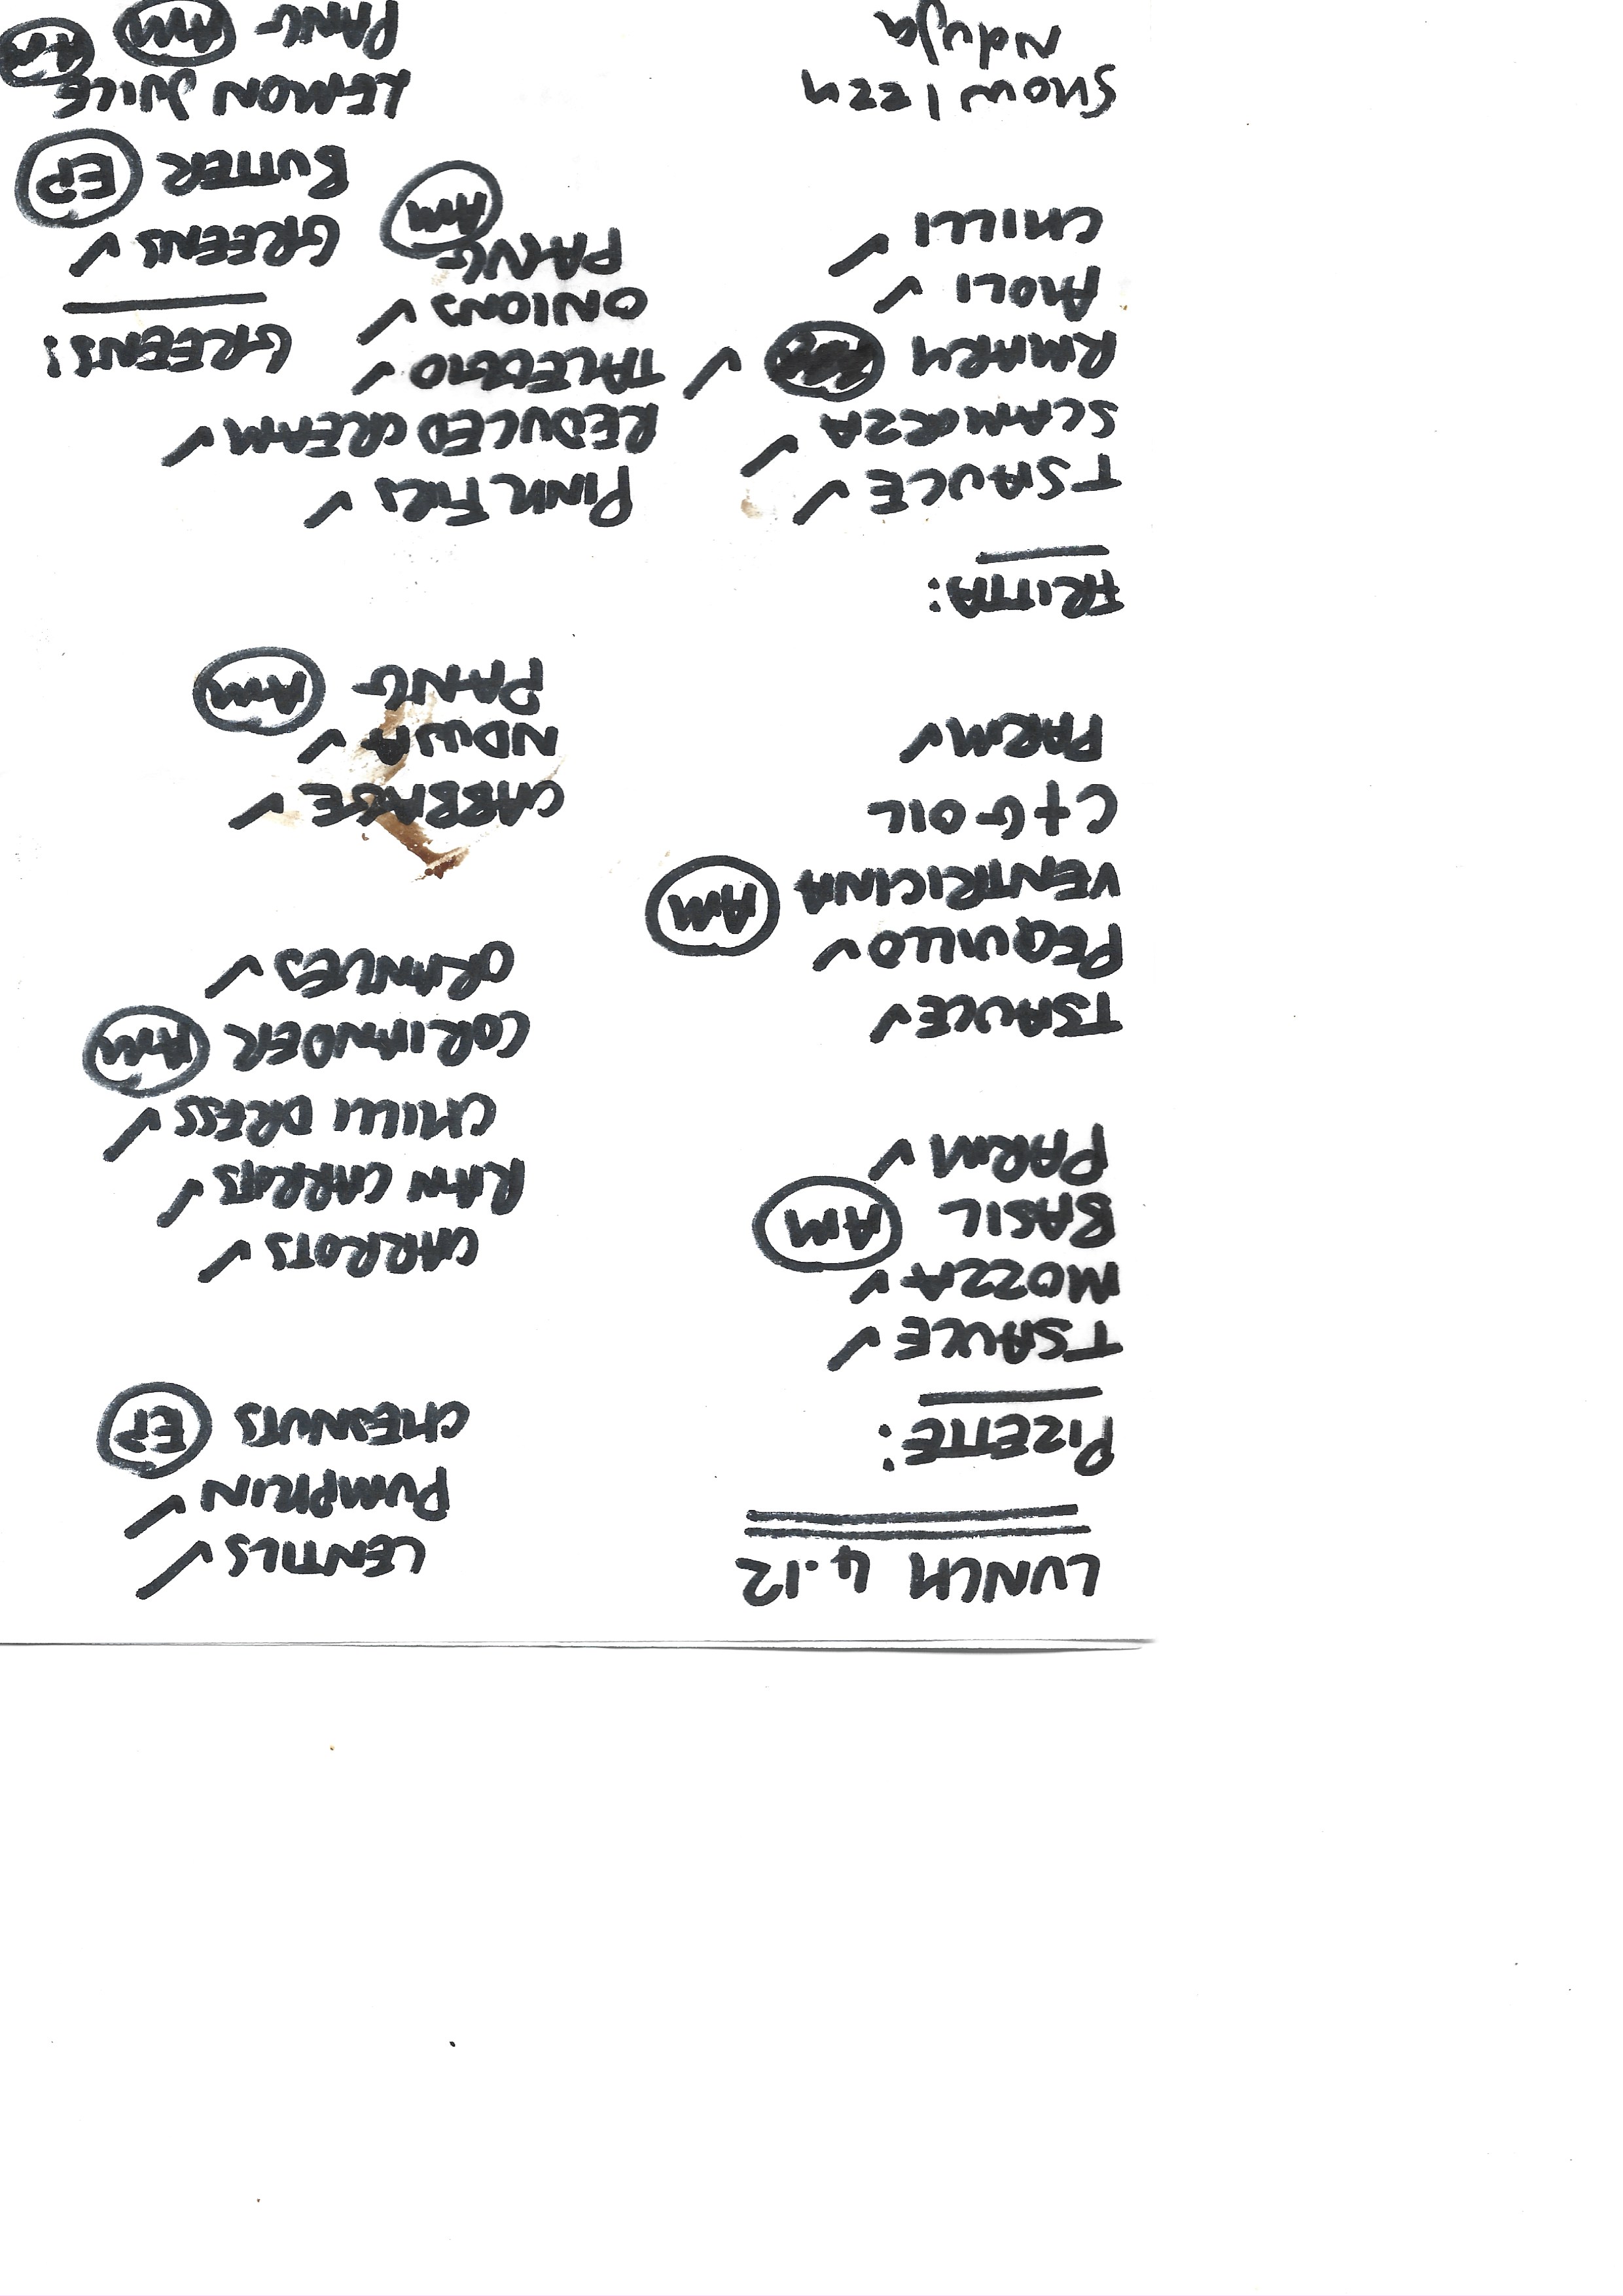 LUNCH 4.12
PIZETTE:
TSAUCE ✓
MOZZA ✓
BASIL AM
PARM ✓
TSAUCE ✓
PEQUILLO ✓
VENTRICINA AM
C+G OIL
PARM ✓
FRITTA:
TSAUCE ✓
SCAMORZA ✓
RMARY ✓
AIOLI ✓
CHILLI ✓
Nduja
LENTILS ✓
PUMPKIN ✓
CHESNUTS EP
CARROTS ✓
RAW CARROTS ✓
CHILLI DRESS ✓
CORIANDER AM
ORANGES ✓
CABBAGE ✓
NDUJA ✓
PANG AM
PINK FIRS ✓
REDUCED CREAM ✓
TALEGGIO ✓
ONIONS ✓
PANG AM
GREENS:
GREENS ✓
BUTTER EP
LEMON JUICE AM
PANG AM